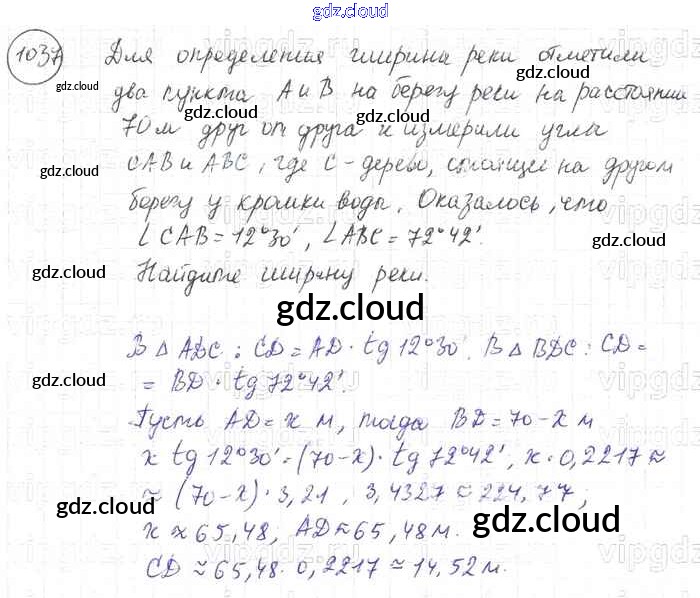 gdz.cloud
1037 Для определения ширина реки отметили
gdz.cloud
gdz.cloud два пункта А и В на берегу реки на расстоянии
gdz.cloud
70 м друг от друга и измерили угла
gdz.cloud
gdz.cloud САВ и АВС, где С - дерево, стоящее на другом
берегу у кромки воды. Оказалось, что
∠CAB = 12°30', ∠ABC = 72°42'.
gdz.cloud
gdz.cloud Найдите ширину реки.
gdz.cloud
В Δ ADC : CD = AD · tg 12°30'. В Δ BDC : CD =
gdz.cloud = BD · tg 72°42'.
Пусть AD = x м, тогда BD = 70 - x м
gdz.cloud
x tg 12°30' = (70 - x) · tg 72°42', x · 0,2217 ≈
gdz.cloud ≈ (70 - x) · 3,21, 3,4327 ≈ 224,77;
gdz.cloud
x ≈ 65,48; AD ≈ 65,48 м.
CD ≈ 65,48 · 0,2217 ≈ 14,52 м.